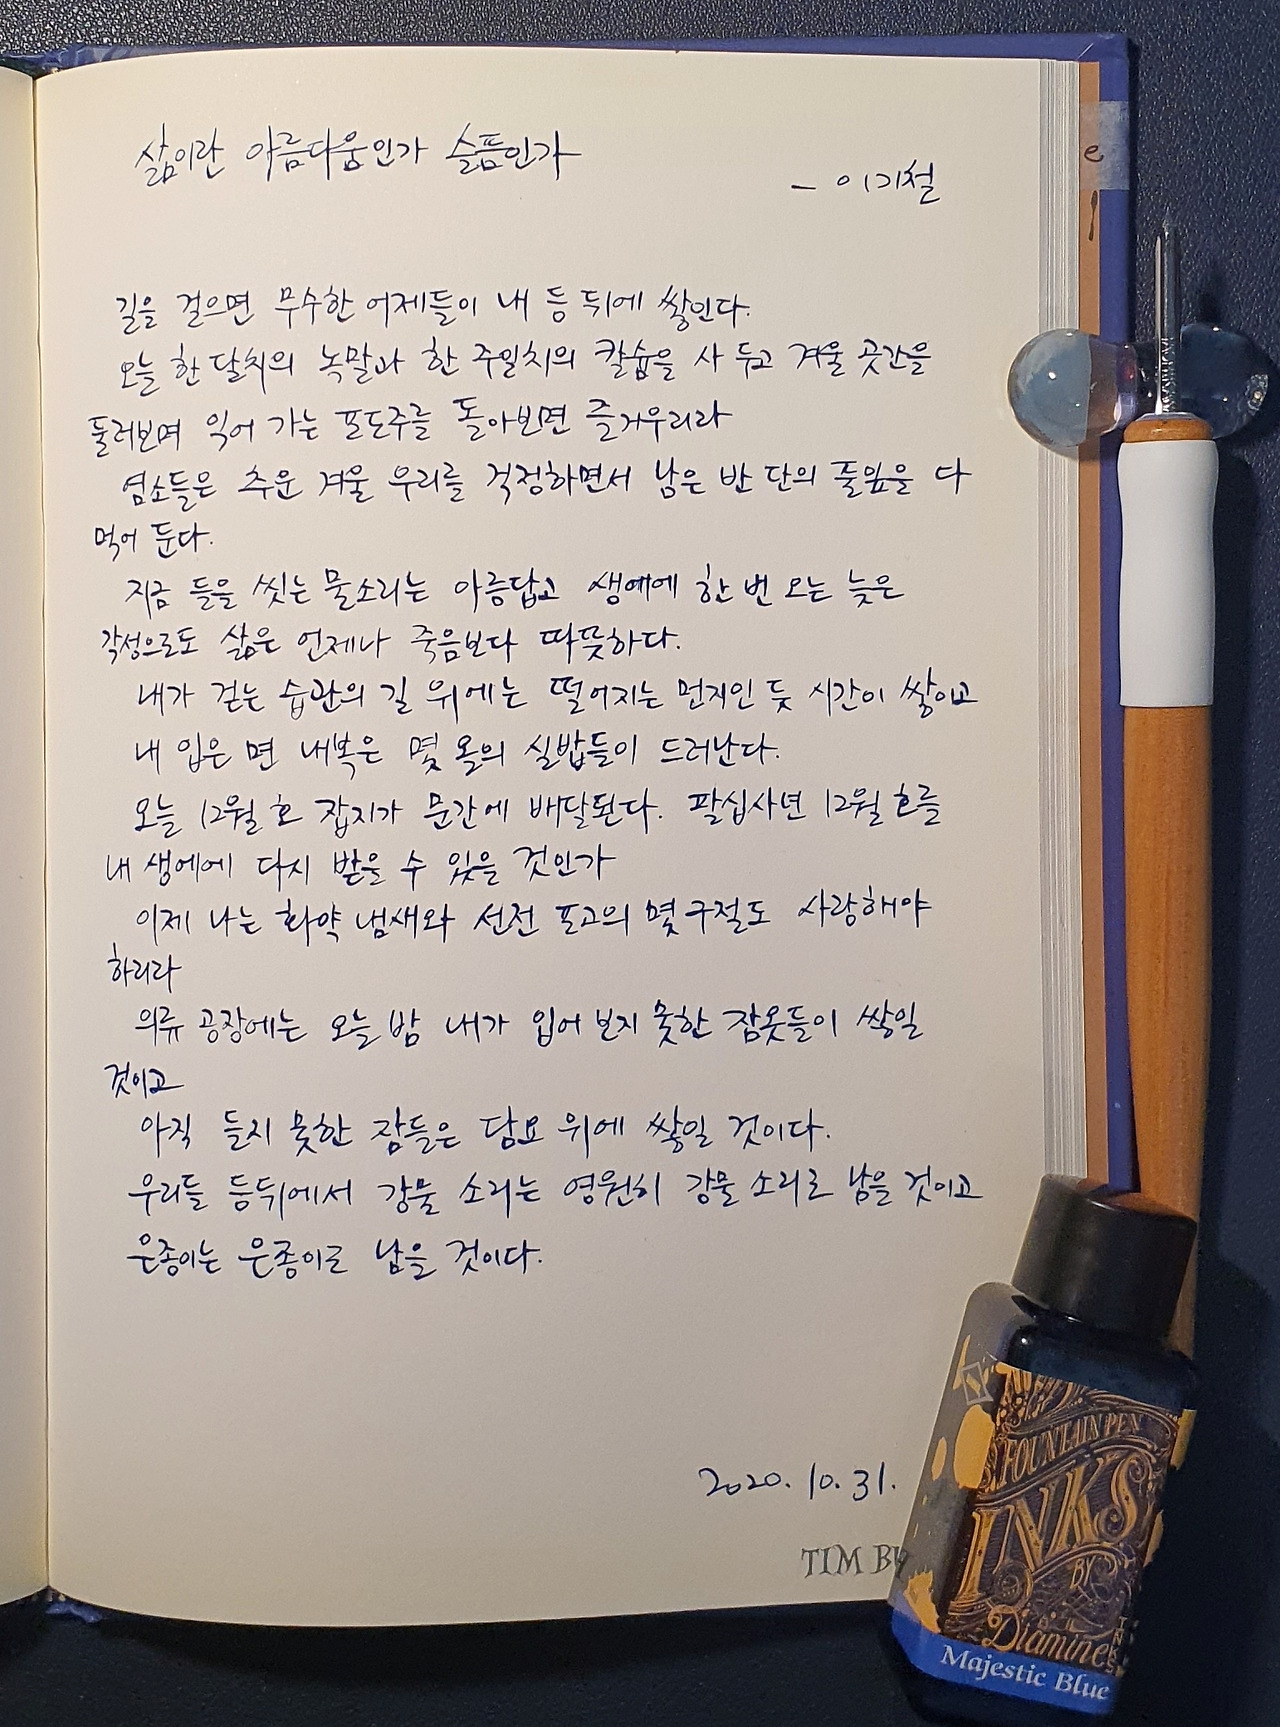 삶이란 아름다움인가 슬픔인가
- 이기철
길을 걸으면 무수한 어제들이 내 등 뒤에 쌓인다.
오늘 한 달치의 녹말과 한 주일치의 칼슘을 사 두고 겨울 곳간을
둘러보며 익어 가는 포도주를 돌아보면 즐거우리라
염소들은 추운 겨울 우리를 걱정하면서 남은 반 단의 풀잎을 다
먹어 둔다.
지금 들을 씻는 물소리는 아름답고 생애에 한 번 오는 늦은
각성으로도 삶은 언제나 죽음보다 따뜻하다.
내가 걷는 습관의 길 위에는 떨어지는 먼지인 듯 시간이 쌓이고
내 입은 면 내복은 몇 올의 실밥들이 드러난다.
오늘 12월 호 잡지가 문간에 배달된다. 팔십사년 12월 호를
내 생에에 다시 받을 수 있을 것인가
이제 나는 화약 냄새와 선전 포고의 몇 구절도 사랑해야
하리라
의류 공장에는 오늘 밤 내가 입어 보지 못한 잠옷들이 쌓일
것이고
아직 들지 못한 잠들은 담요 위에 쌓일 것이다.
우리들 등뒤에서 강물 소리는 영원히 강물 소리로 남을 것이고
은종이는 은종이로 남을 것이다.
2020. 10. 31.
TIM BU
e
l
FOUNTAIN PEN
INKS
BY
Diamine
Majestic Blue